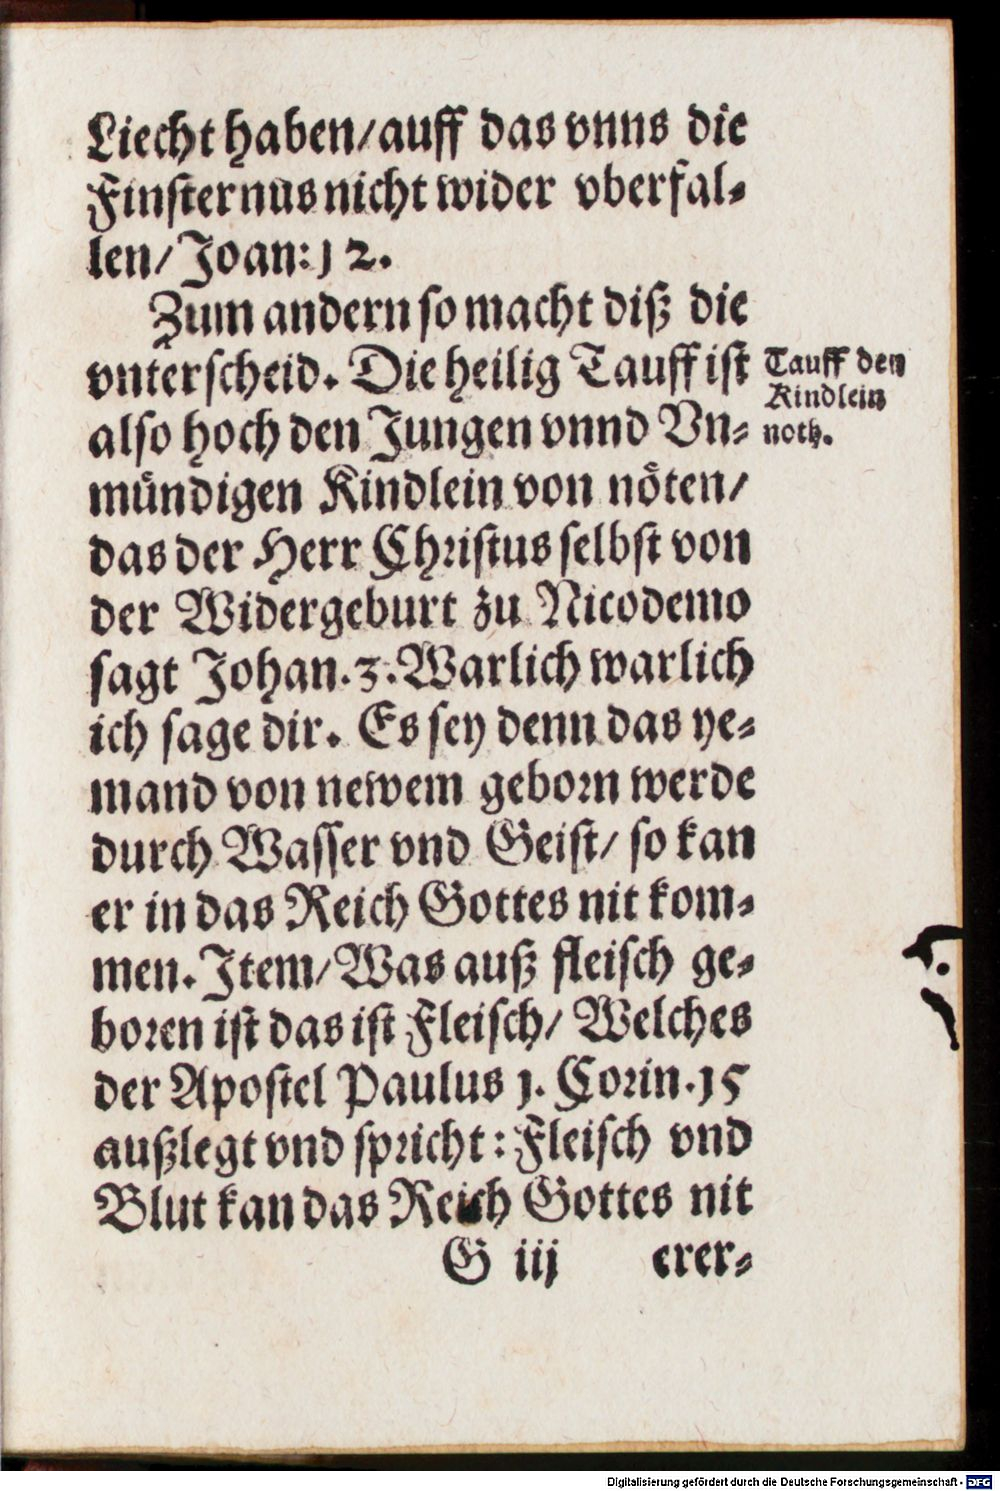 Liecht haben/ auff das vnns die
Finsternus nicht wider vberfal-
len/ Joan: 12.
Zum andern so macht diß die
vnterscheid. Die heilig Tauff ist
also hoch den Jungen vnnd Vn-
mündigen Kindlein von nöten/
das der Herr Christus selbst von
der Widergeburt zu Nicodemo
sagt Johan. 3. Warlich warlich
ich sage dir. Es sey denn das ye-
mand von newem geborn werde
durch Wasser vnd Geist/ so kan
er in das Reich Gottes nit kom-
men. Item/ Was auß fleisch ge-
boren ist das ist Fleisch/ Welches
der Apostel Paulus 1. Corin. 15
außlegt vnd spricht: Fleisch vnd
Blut kan das Reich Gottes nit
G iij erer-
Tauff den
Kindlein
noth.
Digitalisierung gefördert durch die Deutsche Forschungsgemeinschaft - DFG